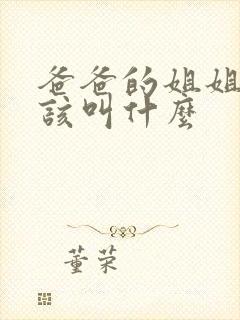 爸爸的姐姐
該叫什麼
董荣